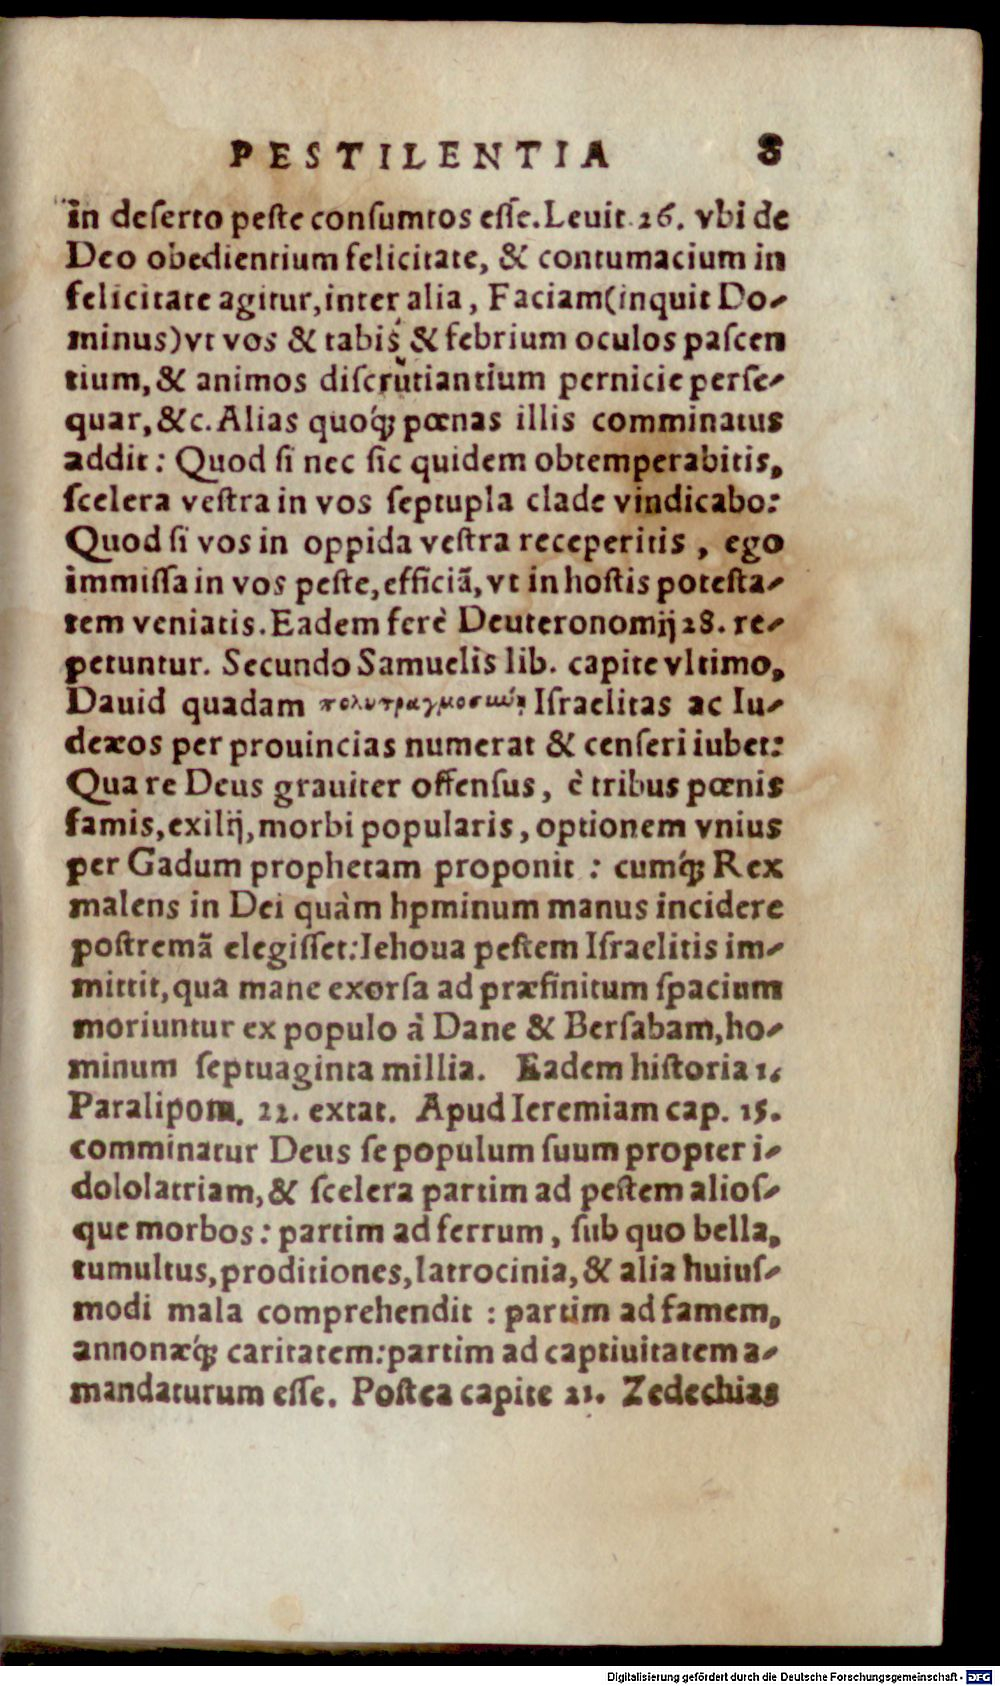 PESTILENTIA 8
in deserto peste consumtos esse. Leuit. 26. vbi de
Deo obedientium felicitate, & contumacium in
felicitate agitur, inter alia, Faciam (inquit Do-
minus) vt vos & tabis & febrium oculos pascen
tium, & animos discrutiantium pernicie perse-
quar, &c. Alias quoq́; pœnas illis comminatus
addit: Quod si nec sic quidem obtemperabitis,
scelera vestra in vos septupla clade vindicabo:
Quod si vos in oppida vestra receperitis, ego
immissa in vos peste, efficiã, vt in hostis potesta-
tem veniatis. Eadem ferè Deuteronomij 28. re-
petuntur. Secundo Samuelis lib. capite vltimo,
Dauid quadam Israelitas ac Iu-
dæos per prouincias numerat & censeri iubet:
Qua re Deus grauiter offensus, è tribus pœnis
famis, exilij, morbi popularis, optionem vnius
per Gadum prophetam proponit : cumq́; Rex
malens in Dei quàm hpminum manus incidere
postremã elegisset: Iehoua pestem Israelitis im-
mittit, qua mane exorsa ad præfinitum spacium
moriuntur ex populo à Dane & Bersabam, ho-
minum septuaginta millia. Eadem historia 1.
Paralipom. 22. extat. Apud Ieremiam cap. 15.
comminatur Deus se populum suum propter i-
dololatriam, & scelera partim ad pestem alios-
que morbos: partim ad ferrum, sub quo bella,
tumultus, proditiones, latrocinia, & alia huius-
modi mala comprehendit : partim ad famem,
annonæq́; caritatem: partim ad captiuitatem a-
mandaturum esse. Postea capite 21. Zedechias
Digitalisierung gefördert durch die Deutsche Forschungsgemeinschaft - DFG